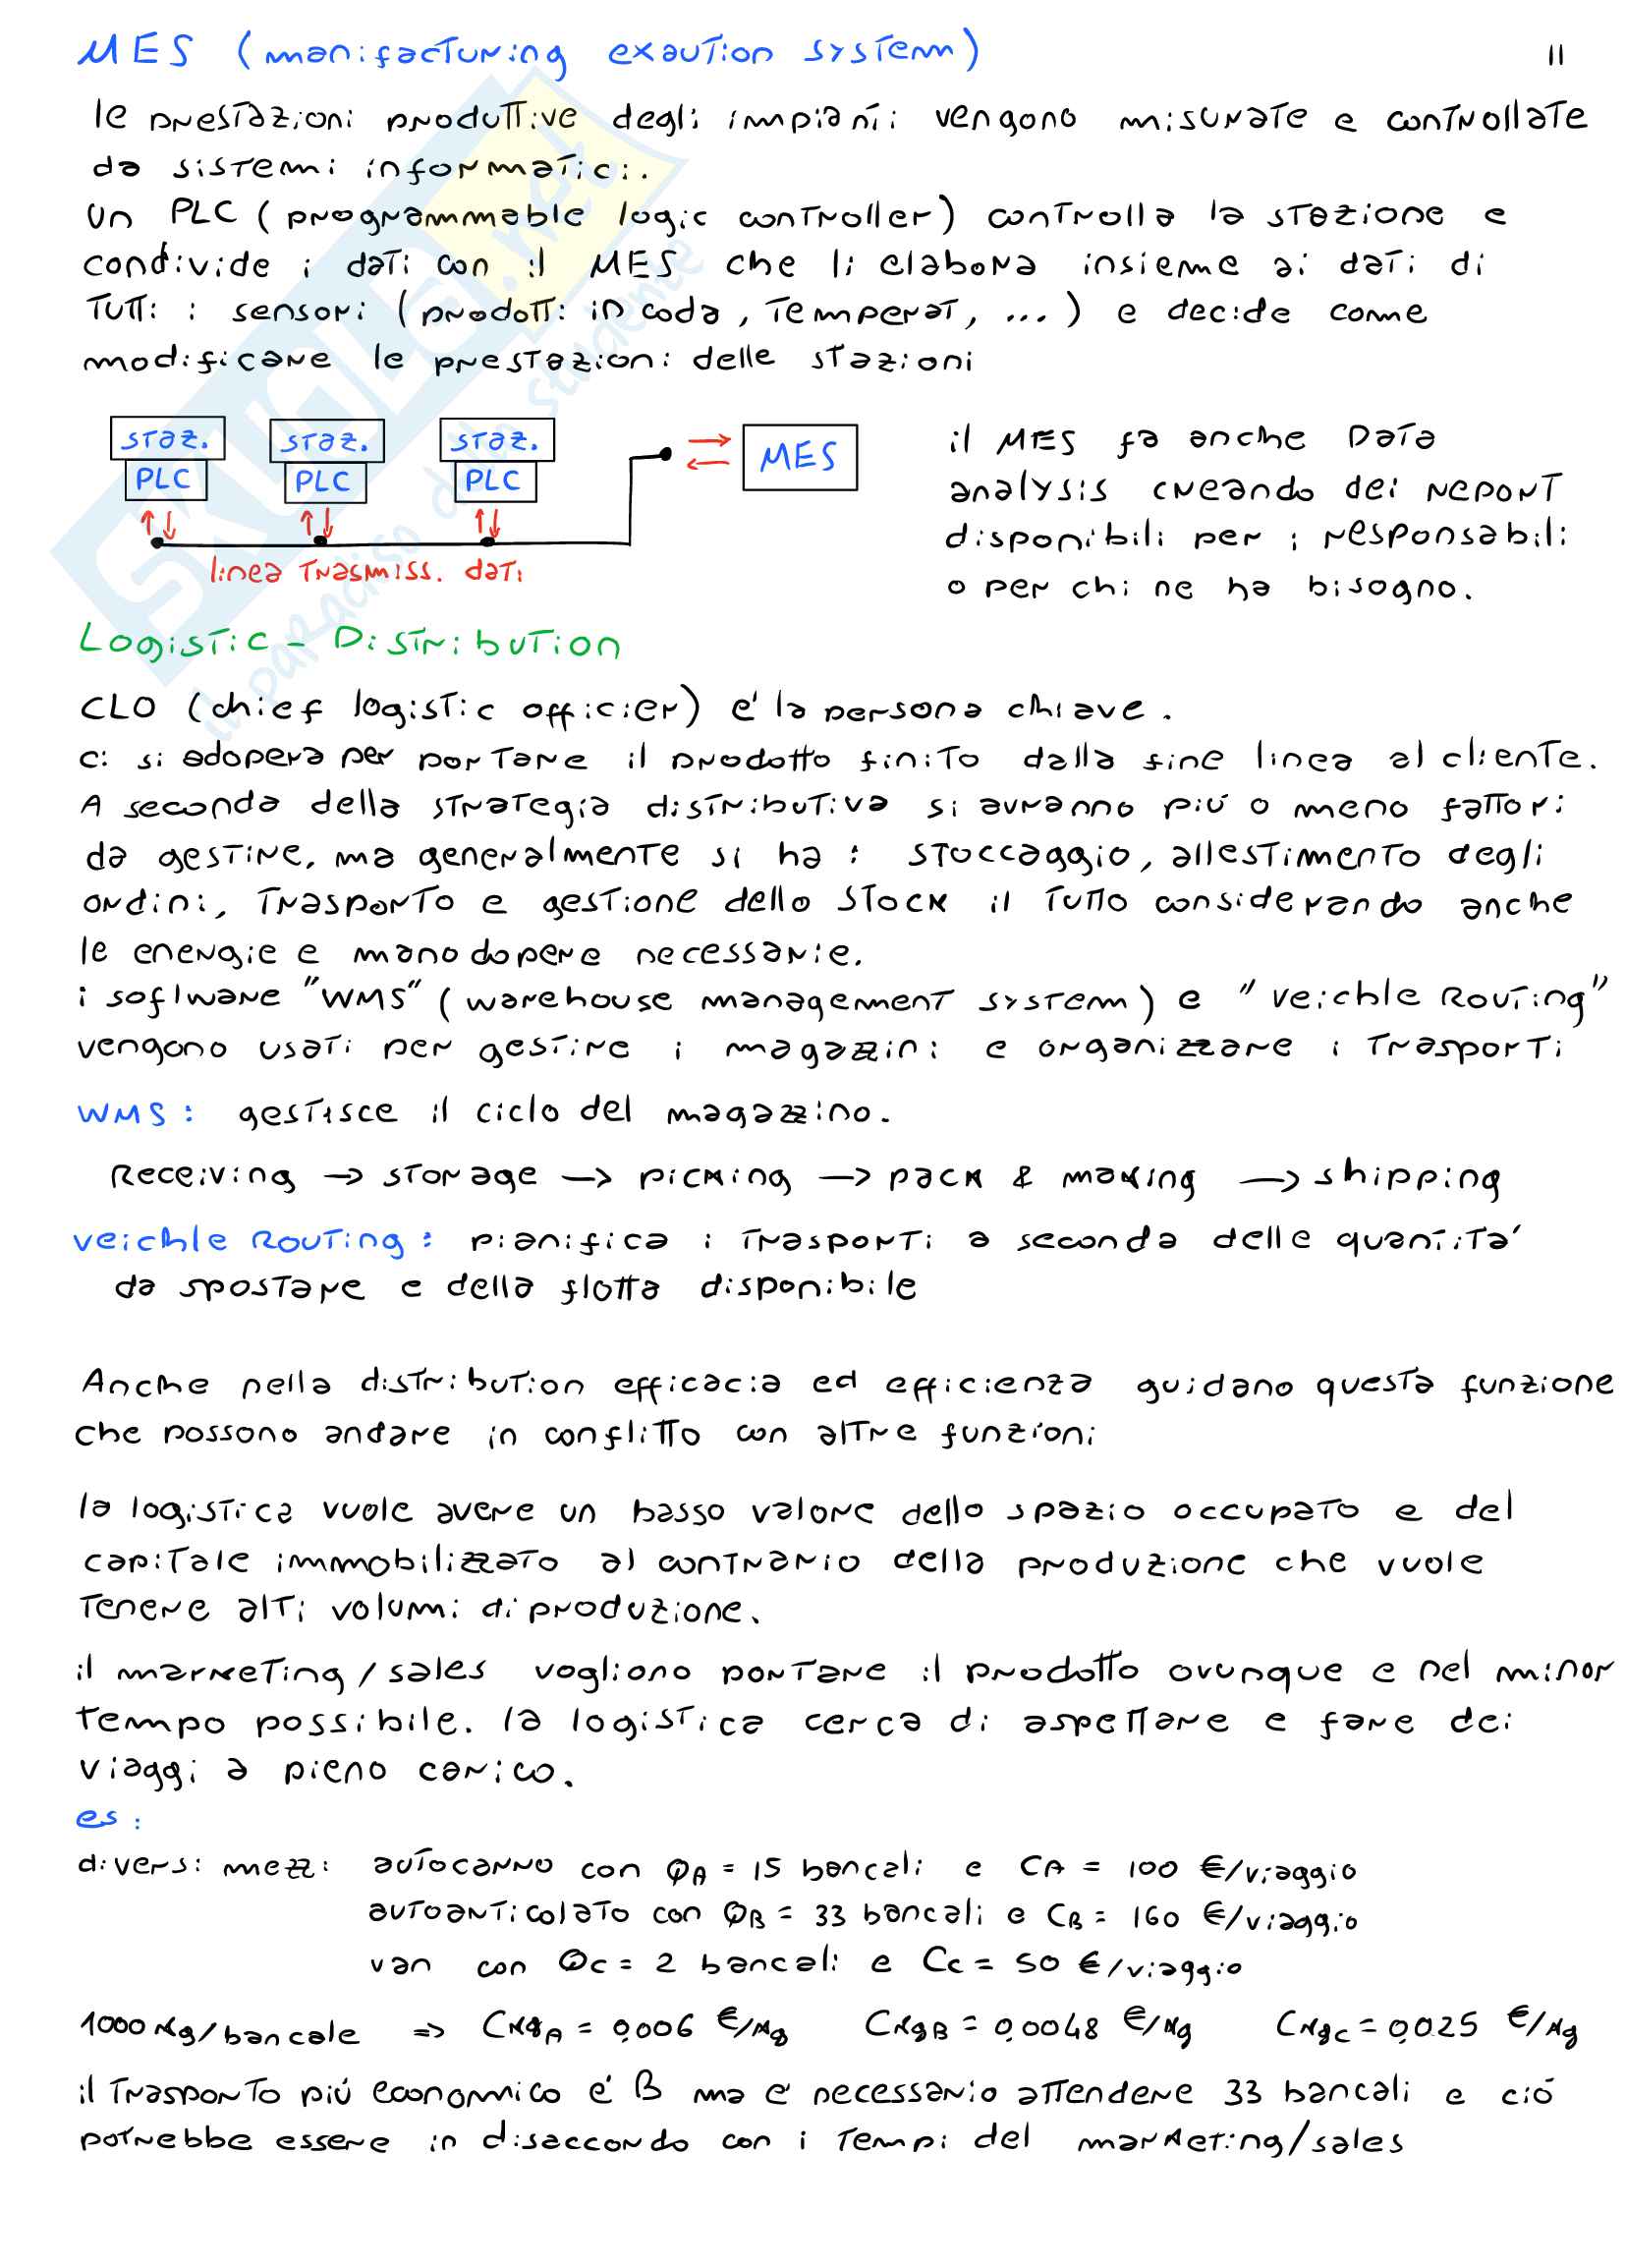 MES (manifacturing exaution system)
11
le prestazioni produttive degli impianti vengono misurate e controllate
da sistemi informatici.
un PLC (programmable logic controller) controlla la stazione e
condivide i dati con il MES che li elabora insieme ai dati di
tutti i sensori (prodotti in coda, temperat, ...) e decide come
modificare le prestazioni delle stazioni
staz. staz. staz.
PLC PLC PLC
MES
linea trasmiss. dati
il MES fa anche Data
analysis creando dei report
disponibili per i responsabili
o per chi ne ha bisogno.
Logistic - Distribution
CLO (chief logistic officier) e' la persona chiave.
ci si adopera per portare il prodotto finito dalla fine linea al cliente.
A seconda della strategia distributiva si avranno più o meno fattori
da gestire, ma generalmente si ha : stoccaggio, allestimento degli
ordini, trasporto e gestione dello stock il tutto considerando anche
le energie e manodopere necessarie.
i software "WMS" (warehouse management system) e "veichle Routing"
vengono usati per gestire i magazzini e organizzare i trasporti
WMS : gestisce il ciclo del magazzino.
Receiving → storage → picking → pack & making → shipping
veichle Routing : pianifica i trasporti a seconda delle quantita'
da spostare e della flotta disponibile
Anche nella distribution efficacia ed efficienza guidano questa funzione
che possono andare in conflitto con altre funzioni
la logistica vuole avere un basso valore dello spazio occupato e del
capitale immobilizzato al contrario della produzione che vuole
tenere alti volumi di produzione.
il marketing/sales vogliono portare il prodotto ovunque e nel minor
tempo possibile. la logistica cerca di aspettare e fare dei
viaggi a pieno carico.
es :
diversi mezzi autocarro con QA = 15 bancali e CA = 100 €/viaggio
autoarticolato con QB = 33 bancali e CB = 160 €/viaggio
van con QC = 2 bancali e CC = 50 €/viaggio
1000 kg/bancale => CkgA = 0,006 €/kg CkgB = 0,0048 €/kg CkgC = 0,025 €/kg
il trasporto più economico e' B ma e' necessario attendere 33 bancali e ciò
potrebbe essere in disaccordo con i tempi del marketing/sales
SKUOLA.net
il paradiso dello studente